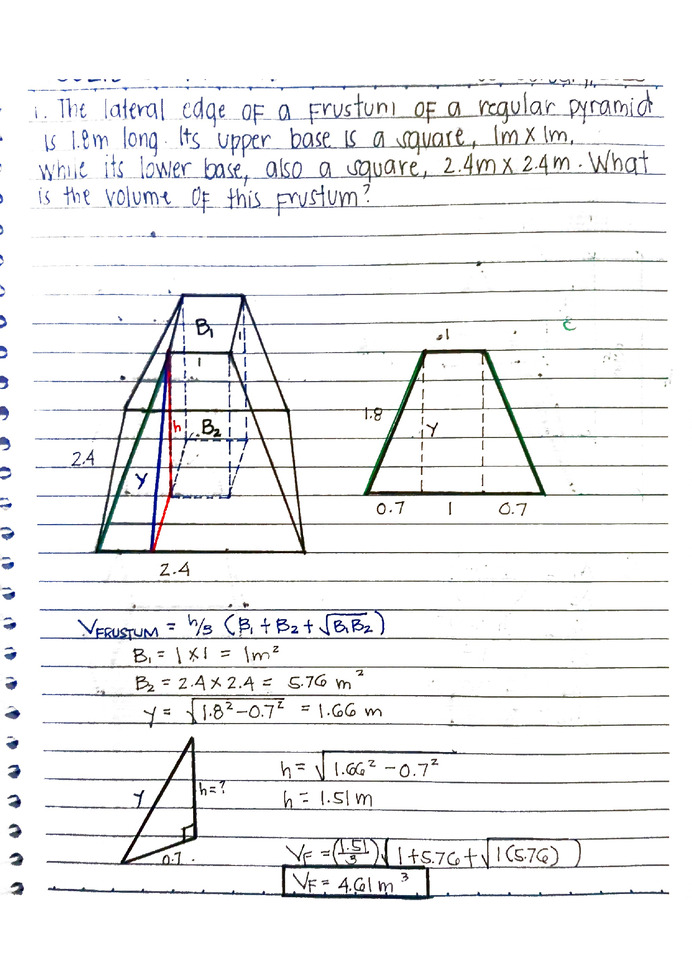 1. The lateral edge of a frustum of a regular pyramid
is 1.8m long. Its upper base is a square, 1m x 1m,
while its lower base, also a square, 2.4m x 2.4m. What
is the volume of this frustum?
B₁
1
1
1
c
h
B₂
1.8
Y
2.4
y
0.7 1 0.7
2.4
VFRUSTUM = h/3 (B₁ + B₂ + √B₁B₂)
B₁ = 1 x 1 = 1m²
B₂ = 2.4 x 2.4 = 5.76 m²
y = √1.8² - 0.7² = 1.66 m
h = √1.66² - 0.7²
y
h = ?
h = 1.51 m
0.7
VF = (1.51/3)(1 + 5.76 + √1(5.76))
VF = 4.61 m³